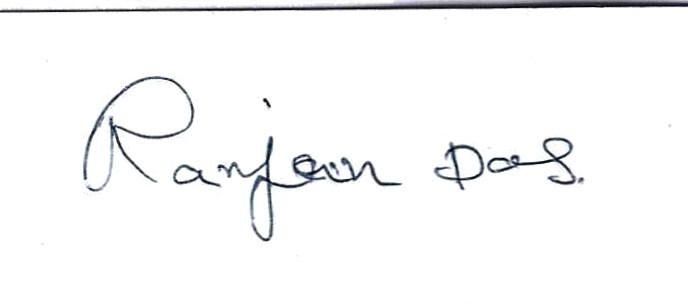 Ranjan Das.